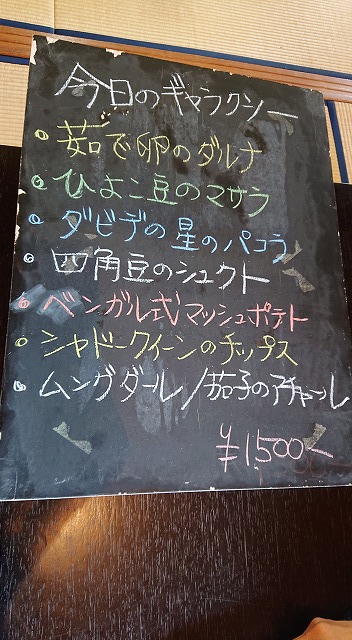 今日のギャラクシー
茹で卵のダルナ
ひよこ豆のマサラ
ダビデの星のパコラ
四角豆のシュクト
ベンガル式マッシュポテト
シャドークイーンのチップス
ムングダール/茄子のアチャール
¥1,500-